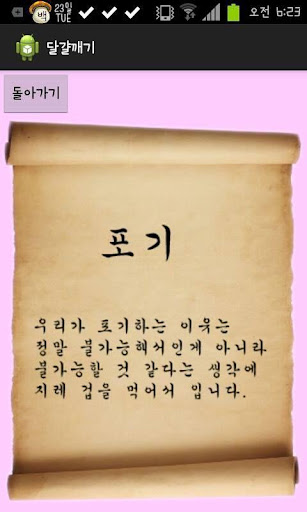 백 23일 TUE 오전 6:23
달걀깨기
돌아가기
포기
우리가 포기하는 이유는
정말 불가능해서인게 아니라
불가능할 것 같다는 생각에
지레 겁을 먹어서 입니다.